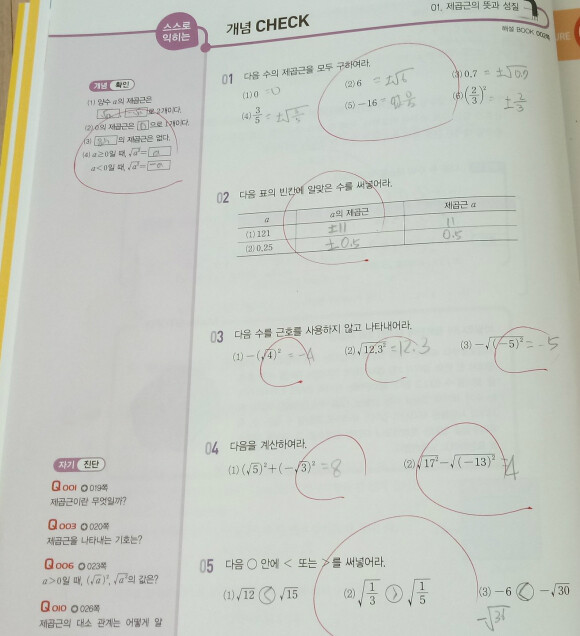 01. 제곱근의 뜻과 성질
해설 BOOK 002쪽
스스로
익히는
개념 CHECK
개념 확인
(1) 양수 a의 제곱근은
√a, -√a로 2개이다.
(2) 0의 제곱근은 0으로 1개이다.
(3) 음수의 제곱근은 없다.
(4) a≥0일 때, √a²= a
a<0일 때, √a²= -a
01 다음 수의 제곱근을 모두 구하여라.
(1) 0 = 0 (2) 6 = ±√6 (3) 0.7 = ±√0.7
(4) 3/5 = ±√3/5 (5) -16 = 없음 (6) (2/3)² = ±2/3
02 다음 표의 빈칸에 알맞은 수를 써넣어라.
a a의 제곱근 제곱근 a
(1) 121 ±11 11
(2) 0.25 ±0.5 0.5
03 다음 수를 근호를 사용하지 않고 나타내어라.
(1) -(√4)² = -4 (2) √12.3² = 12.3 (3) -√(-5)² = -5
04 다음을 계산하여라.
(1) (√5)²+(-√3)² = 8 (2) √17²-√(-13)² = 4
자기 진단
Q 001 019쪽
제곱근이란 무엇일까?
Q 003 020쪽
제곱근을 나타내는 기호는?
Q 006 023쪽
a>0일 때, (√a)², √a²의 값은?
Q 010 026쪽
제곱근의 대소 관계는 어떻게 알
05 다음 ○ 안에 < 또는 >를 써넣어라.
(1) √12 < √15 (2) √1/3 > √1/5 (3) -6 < -√30
-√36